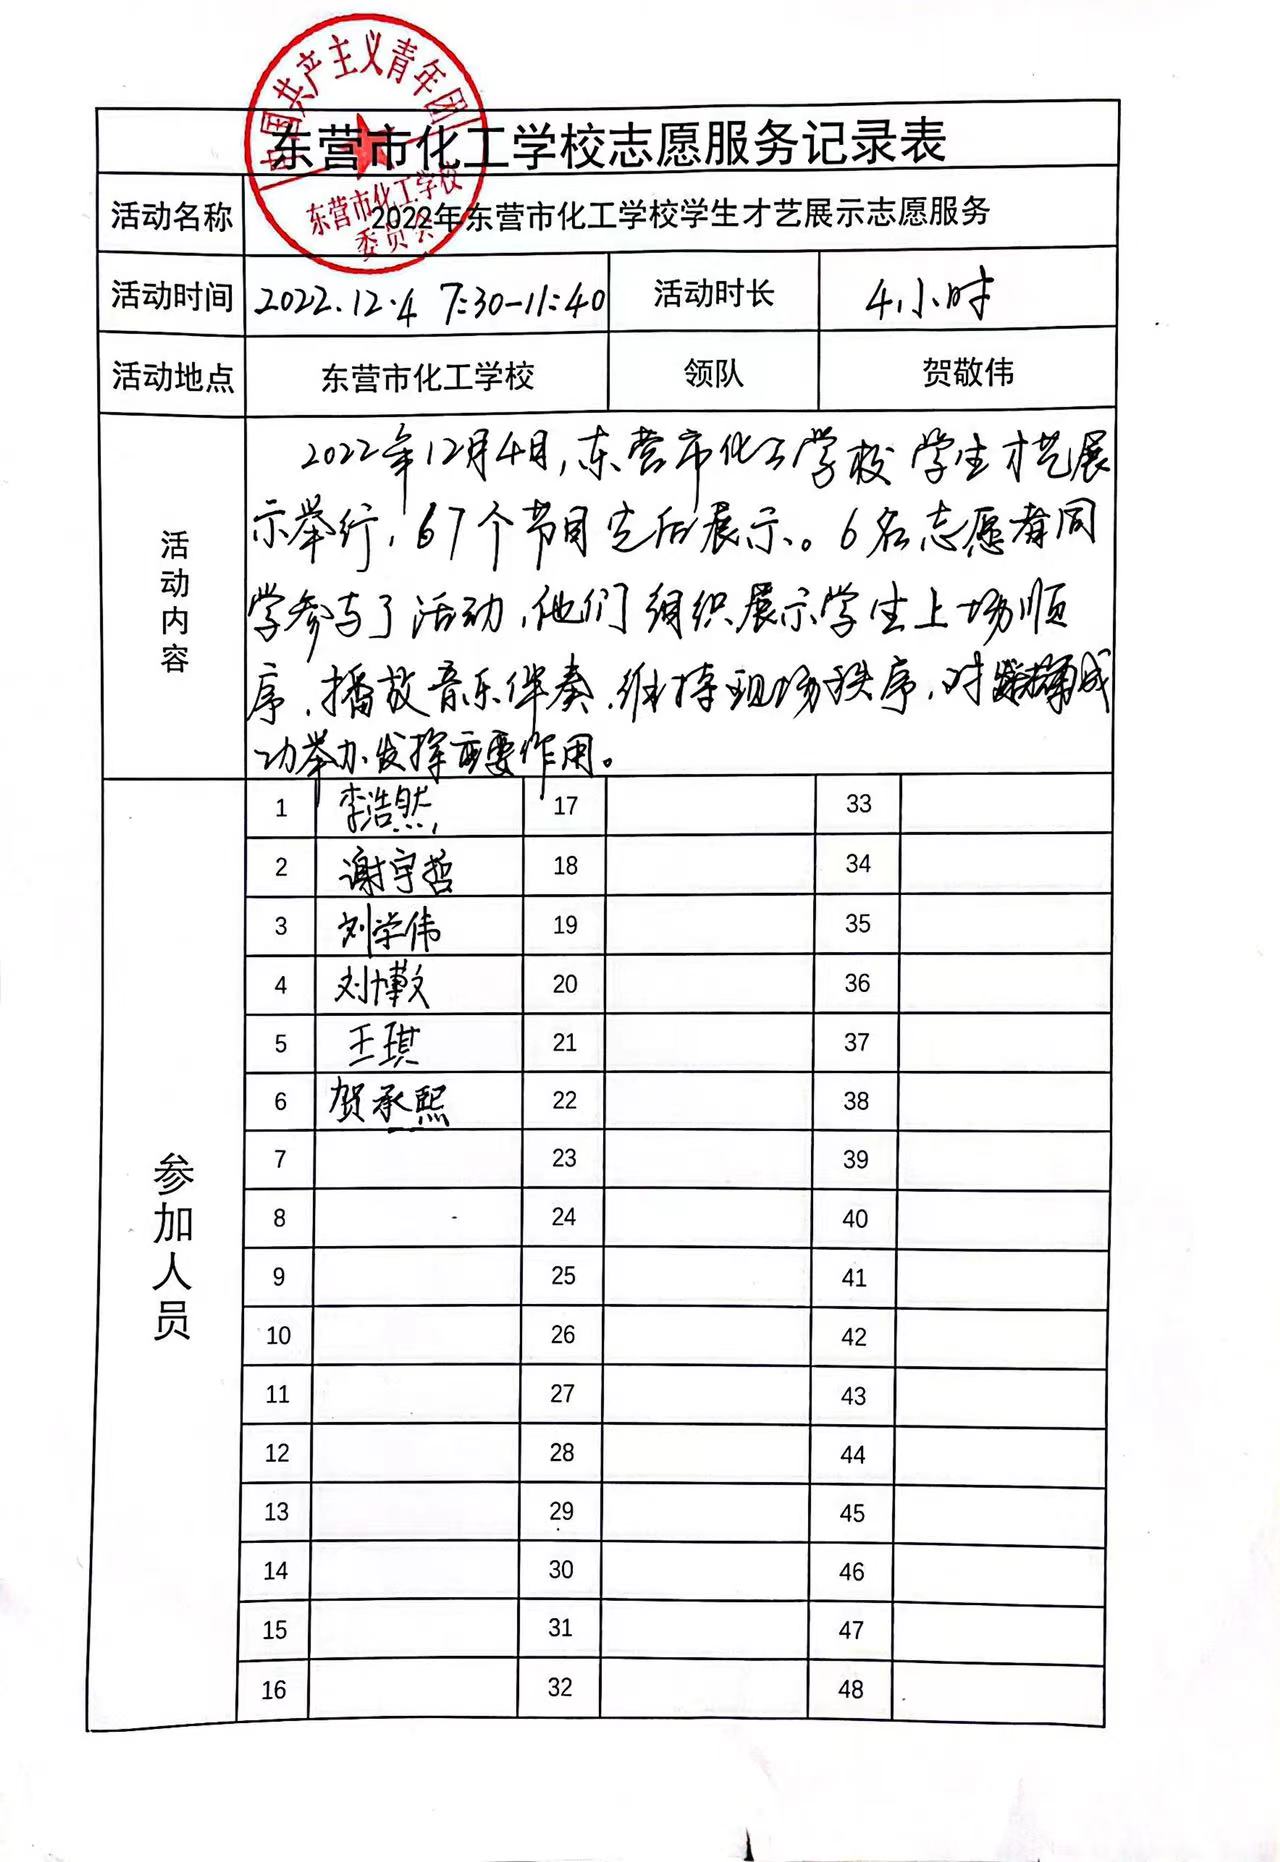 中国共产主义青年团
东营市化工学校
委员会
东营市化工学校志愿服务记录表
活动名称 2022年东营市化工学校学生才艺展示志愿服务
活动时间 2022.12.4 7:30-11:40 活动时长 4小时
活动地点 东营市化工学校 领队 贺敬伟
活动内容
2022年12月4日,东营市化工学校学生才艺展
示举行,67个节目先后展示。6名志愿者同
学参与了活动,他们组织展示学生上场顺
序,播放音乐伴奏,维持现场秩序,对成
功举办发挥重要作用。
参加人员
1 李浩然 17 33
2 谢宇哲 18 34
3 刘学伟 19 35
4 刘博文 20 36
5 王琪 21 37
6 贺承熙 22 38
7 23 39
8 24 40
9 25 41
10 26 42
11 27 43
12 28 44
13 29 45
14 30 46
15 31 47
16 32 48